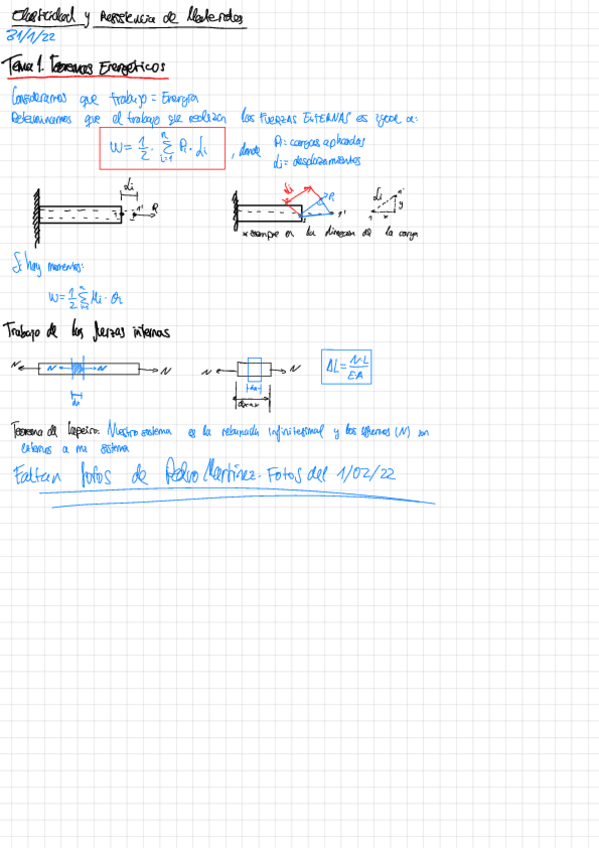 Elasticidad y Resistencia de Materiales
31/1/22
Tema 1. Teoremas Energéticos
Consideramos que trabajo = Energía
Determinamos que el trabajo que realizan las FUERZAS EXTERNAS es igual a:
W = 1/2 · Σ_{i=1}^{n} Pi · di , donde
Pi = cargas aplicadas
di = desplazamientos
di
1 1' Pi
di Pi 1'
di 1' y
1 x
* siempre en la dirección de la carga
Si hay momentos:
W = 1/2 Σ_{i=1}^{n} Mi · θi
Trabajo de las fuerzas internas
N N N N
dx
N N
dx
ΔL = NL/EA
Teorema de Clapeyron: Nuestro sistema es la rebanada infinitesimal y los esfuerzos (N) son
externos a mi sistema
Faltan fotos de Pedro Martínez. Fotos del 1/02/22